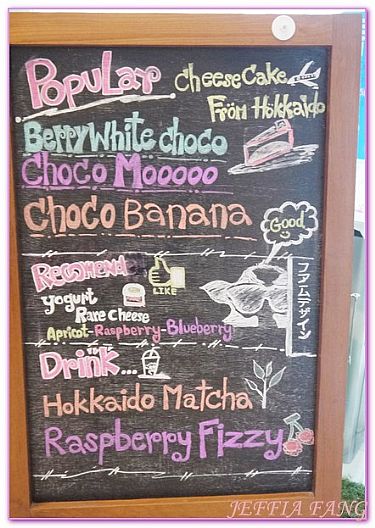 PopuLar
CheeseCake
From Hokkaido
Berry White choco
Choco Mooooo
Choco Banana
Good
Recomend
LIKE
yogurt
Rare Cheese
Apricot-Raspberry-Blueberry
ファームデザイン
Drink...
Hokkaido Matcha
Raspberry Fizzy
JEFFIA FANG